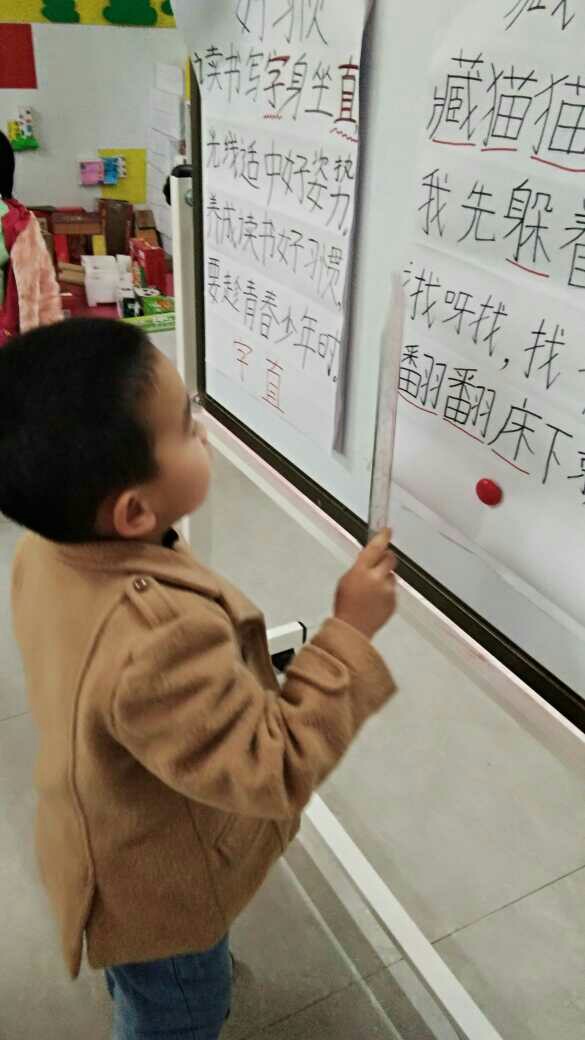 好习惯
读书写字身坐直
光线适中好姿势,
养成读书好习惯,
要趁青春少年时。
字 直
藏猫猫
我先躲着
找呀找,找
翻翻床下